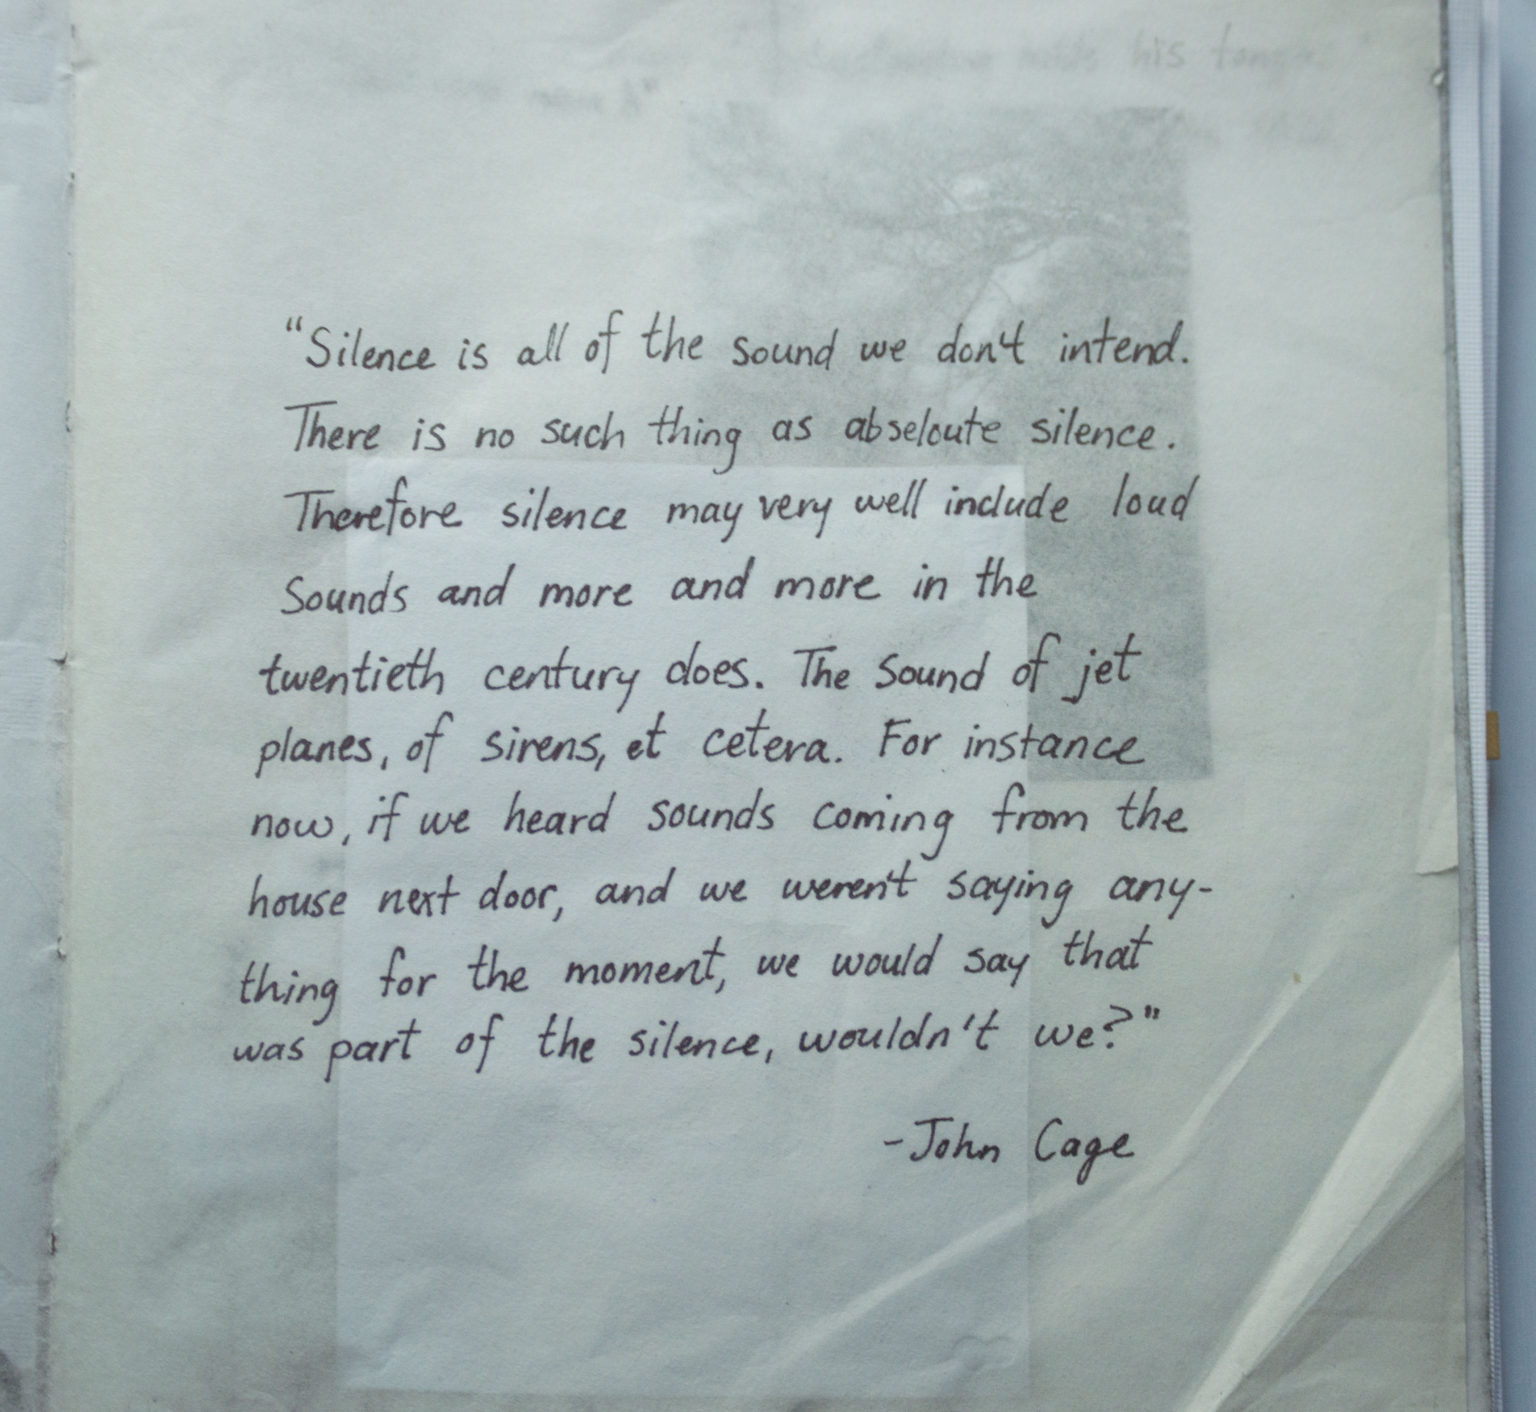 his
"Silence is all of the sound we don't intend.
There is no such thing as abseloute silence.
Therefore silence may very well include loud
Sounds and more and more in the
twentieth century does. The Sound of jet
planes, of sirens, et cetera. For instance
now, if we heard sounds coming from the
house next door, and we weren't saying any-
thing for the moment, we would say that
was part of the silence, wouldn't we?"
-John Cage